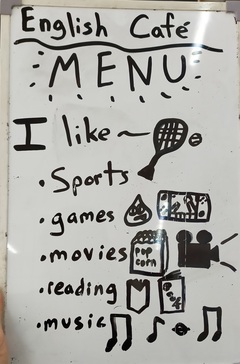 English Café
MENU
I like ~
• Sports
• games
• movies pop corn
• reading
• music